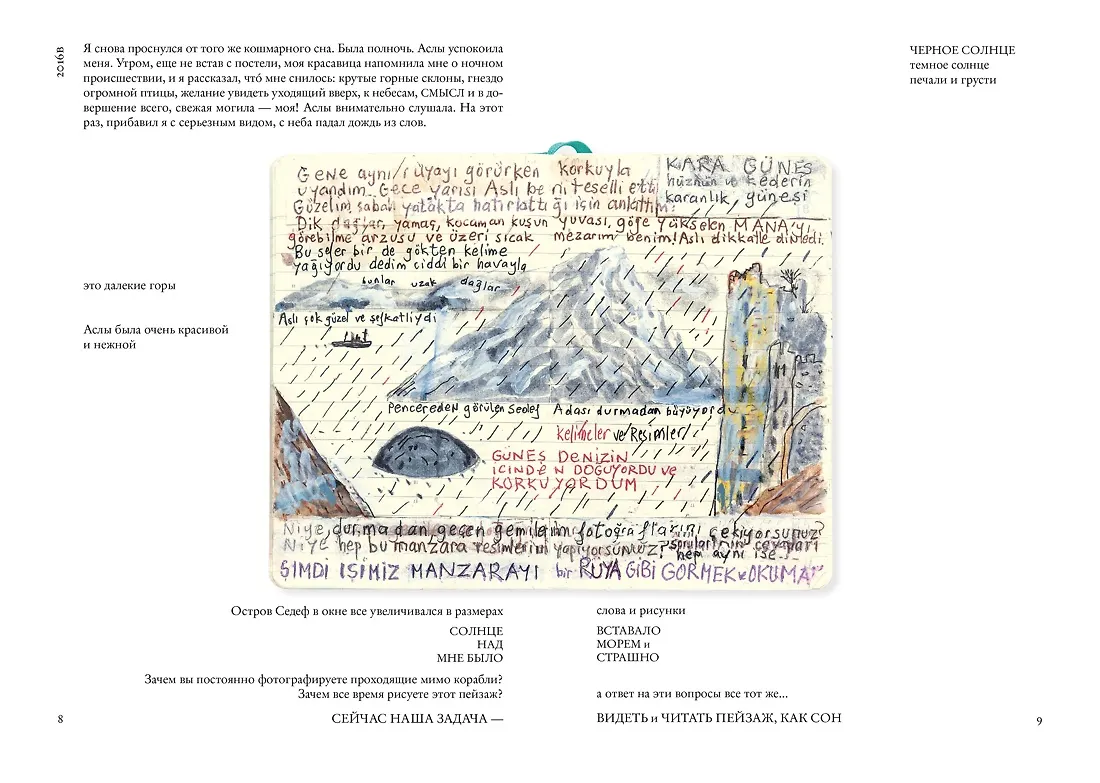 2016в
Я снова проснулся от того же кошмарного сна. Была полночь. Аслы успокоила
меня. Утром, еще не встав с постели, моя красавица напомнила мне о ночном
происшествии, и я рассказал, что́ мне снилось: крутые горные склоны, гнездо
огромной птицы, желание увидеть уходящий вверх, к небесам, СМЫСЛ и в до-
вершение всего, свежая могила — моя! Аслы внимательно слушала. На этот
раз, прибавил я с серьезным видом, с неба падал дождь из слов.
ЧЕРНОЕ СОЛНЦЕ
темное солнце
печали и грусти
Gene aynı rüyayı görürken korkuyla
uyandım. Gece yarısı Aslı beni teselli etti
Güzelim sabah yatakta hatırlattığı için anlattım:
KARA GÜNEŞ
hüznün ve kederin
karanlık, güneşi
Dik dağlar, yamaç, kocaman kuşun yuvası, göğe yükselen MANA'yı
görebilme arzusu ve üzeri sıcak mezarım benim! Aslı dikkatle dinledi.
Bu sefer bir de gökten kelime
yağıyordu dedim ciddi bir havayla
bunlar uzak dağlar
Aslı çok güzel ve şefkatliydi
Pencereden görülen Sedef Adası durmadan büyüyordu
Kelimeler ve Resimler
GÜNEŞ DENİZİN
İÇİNDEN DOĞUYORDU ve
KORKUYORDUM
Niye durmadan geçen gemilerin fotoğraflarını çekiyorsunuz?
Niye hep bu manzara resimlerini yapıyorsunuz? soruların cevapları
hep aynı ise...
ŞİMDİ İŞİMİZ MANZARAYI bir RÜYA GİBİ GÖRMEK ve OKUMA
это далекие горы
Аслы была очень красивой
и нежной
Остров Седеф в окне все увеличивался в размерах
слова и рисунки
СОЛНЦЕ
НАД
МНЕ БЫЛО
ВСТАВАЛО
МОРЕМ и
СТРАШНО
Зачем вы постоянно фотографируете проходящие мимо корабли?
Зачем все время рисуете этот пейзаж?
а ответ на эти вопросы все тот же...
СЕЙЧАС НАША ЗАДАЧА —
ВИДЕТЬ и ЧИТАТЬ ПЕЙЗАЖ, КАК СОН
8
9